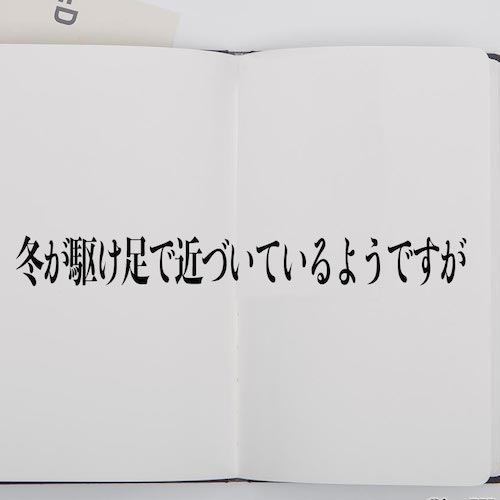 冬が駆け足で近づいているようですが